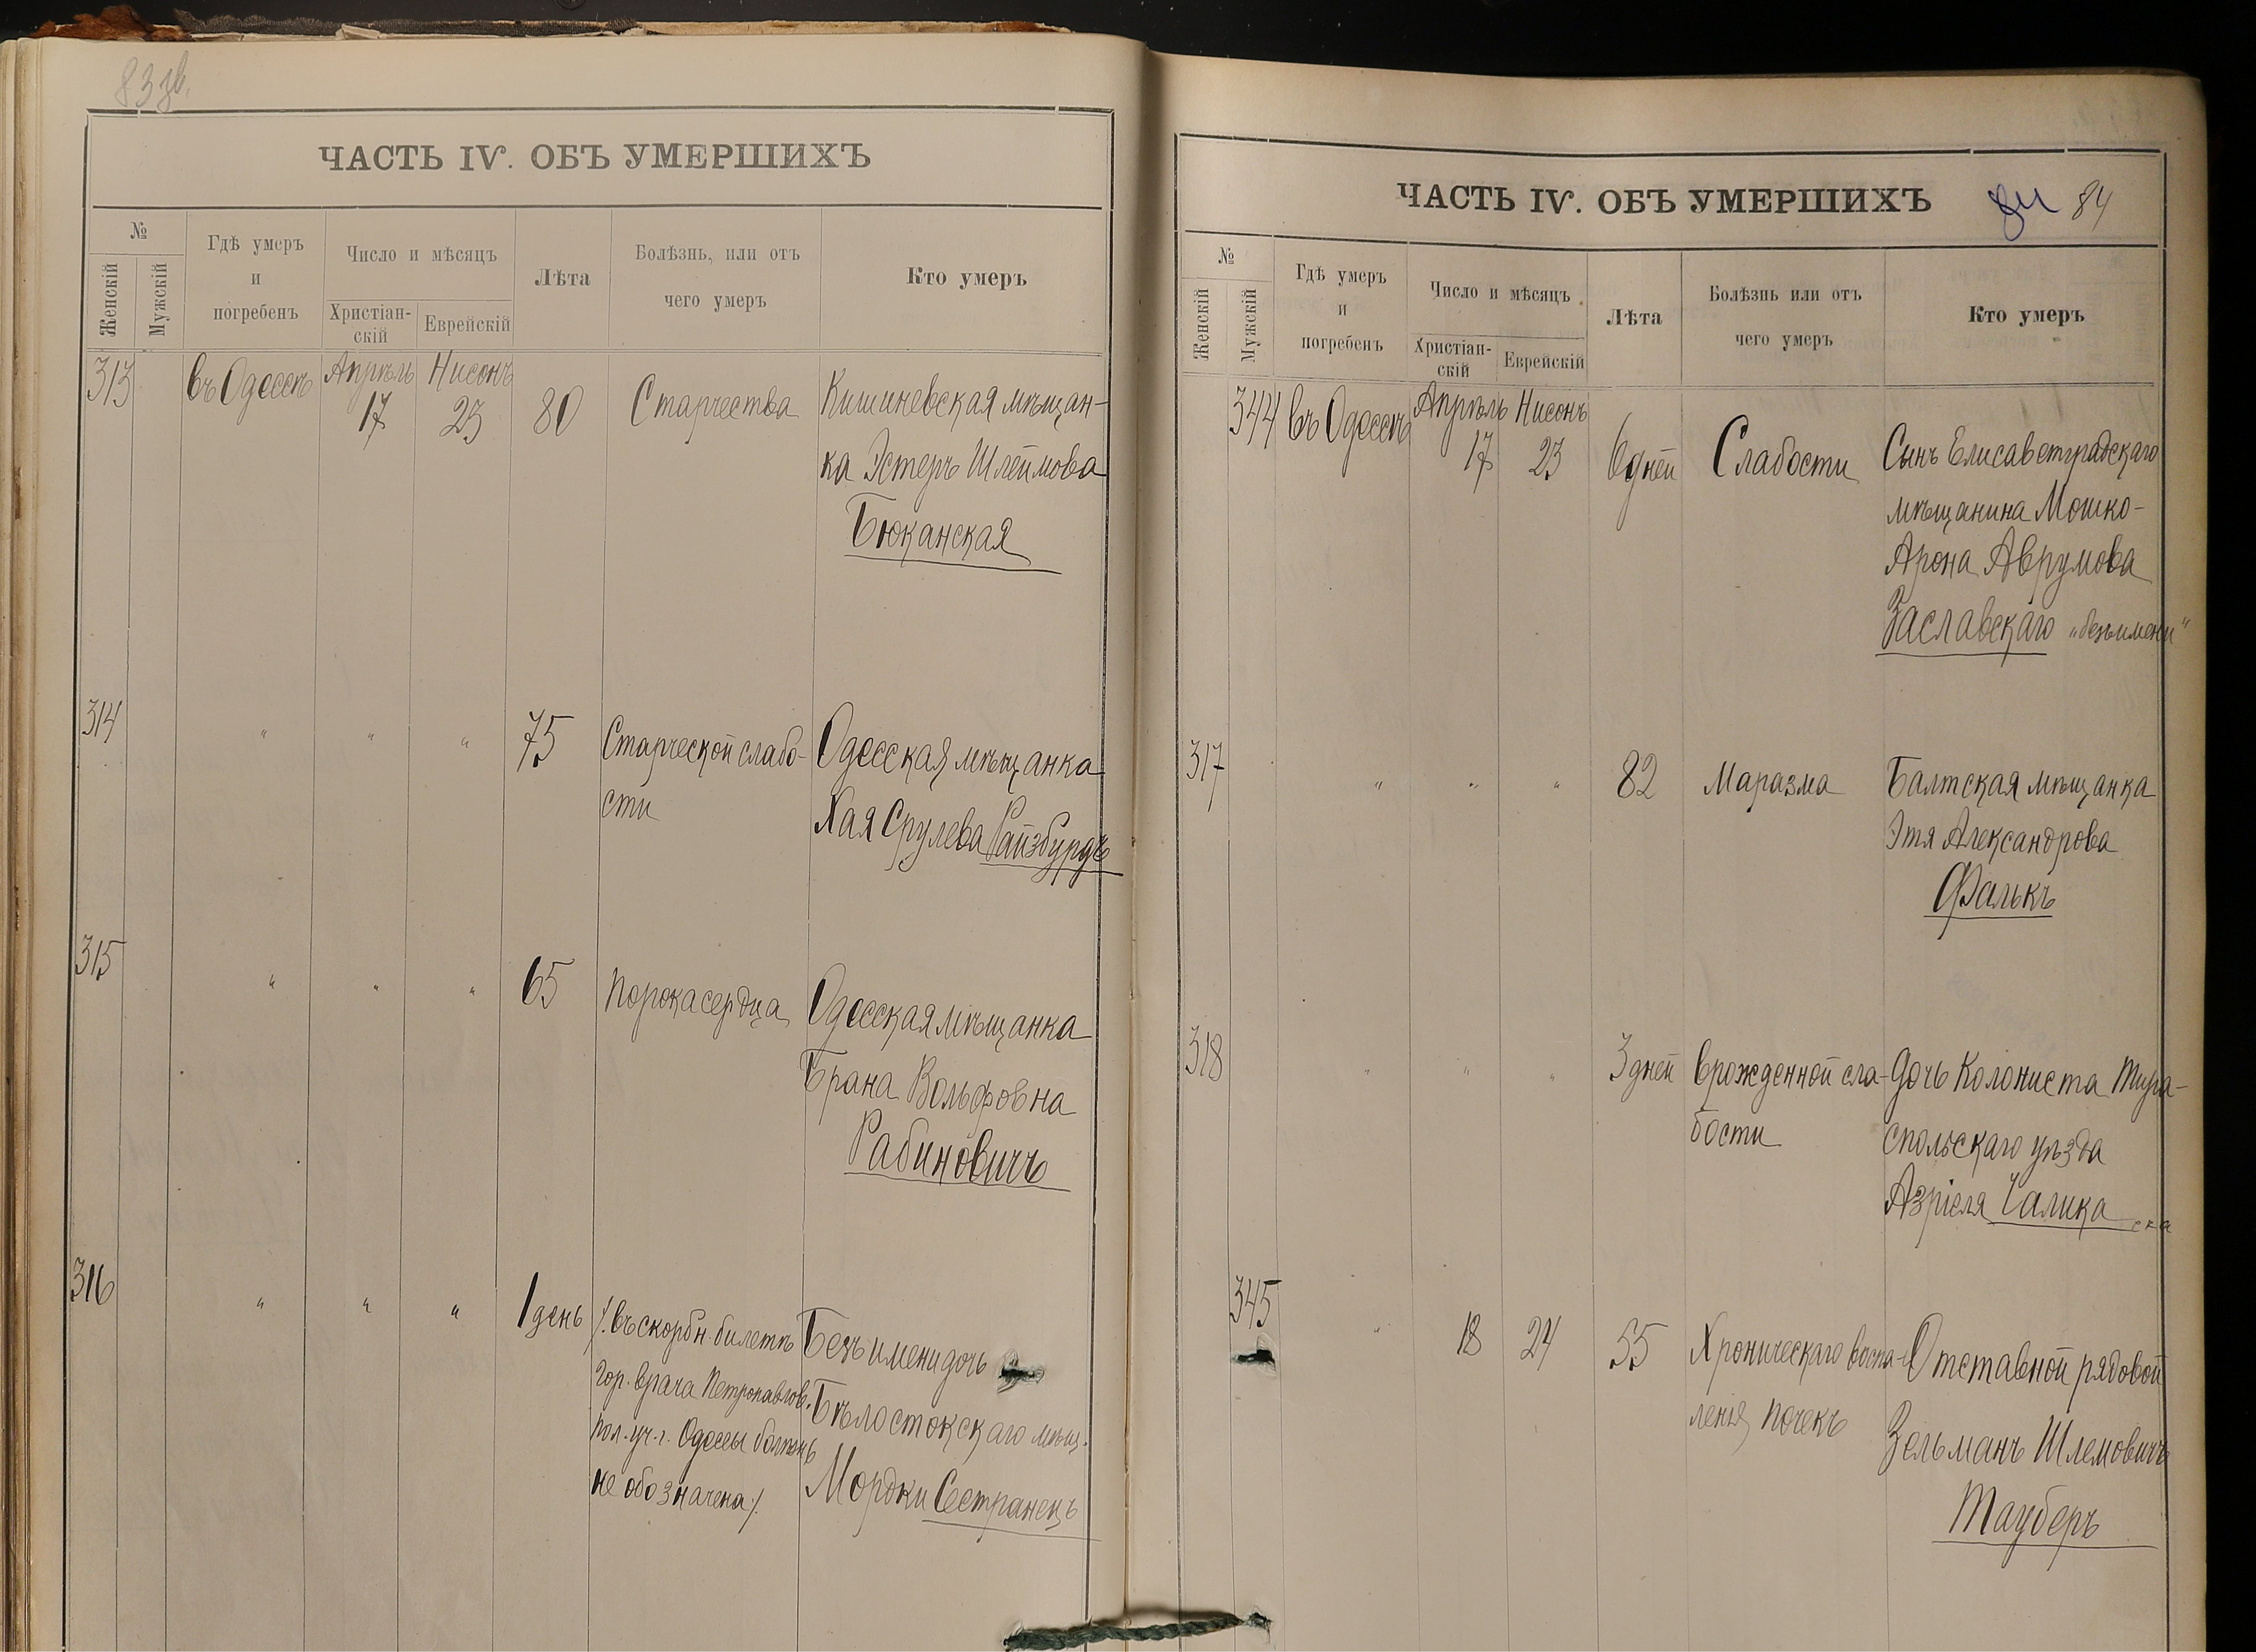 83 зв.
ЧАСТЬ IV. ОБЪ УМЕРШИХЪ
№
Женскій
Мужскій
Гдѣ умеръ
и
погребенъ
Число и мѣсяцъ
Христіан-
скій
Еврейскій
Лѣта
Болѣзнь, или отъ
чего умеръ
Кто умеръ
313
въ Одессѣ
Апрѣль
17
Нисонъ
23
80
Старчества
Кишиневская мѣщан-
ка Эстеръ Шлеймова
Бюканская
314
"
"
"
75
Старческой слабо-
сти
Одесская мѣщанка
Хая Срулева Райзбурдъ
315
"
"
"
65
Порока сердца
Одесская мѣщанка
Брана Вольфовна
Рабиновичъ
316
"
"
"
1 день
/. въ скорбн. билетѣ
Гор. врача Петропавлов.
пол. уч. г. Одессы болѣзнь
не обозначена ./
Безъ имени дочь
Бѣлостокскаго мѣщ.
Мордки Сестранецъ
ЧАСТЬ IV. ОБЪ УМЕРШИХЪ
84
84
№
Женскій
Мужскій
Гдѣ умеръ
и
погребенъ
Число и мѣсяцъ
Христіан-
скій
Еврейскій
Лѣта
Болѣзнь или отъ
чего умеръ
Кто умеръ
344
въ Одессѣ
Апрѣль
17
Нисонъ
23
6 дней
Слабости
Сынъ Елисаветградскаго
мѣщанина Мошко-
Арона Аврумова
Заславскаго "безъимени"
317
"
"
"
82
Маразма
Балтская мѣщанка
Этя Александрова
Фалькъ
318
"
"
"
3 дней
Врожденной сла-
бости
Дочь Колониста Тира-
спольскаго уѣзда
Азріеля Чалика
345
"
18
24
55
Хроническаго воспа-
ленія почекъ
Отставной рядовой
Зельманъ Шлемовичъ
Тауберъ